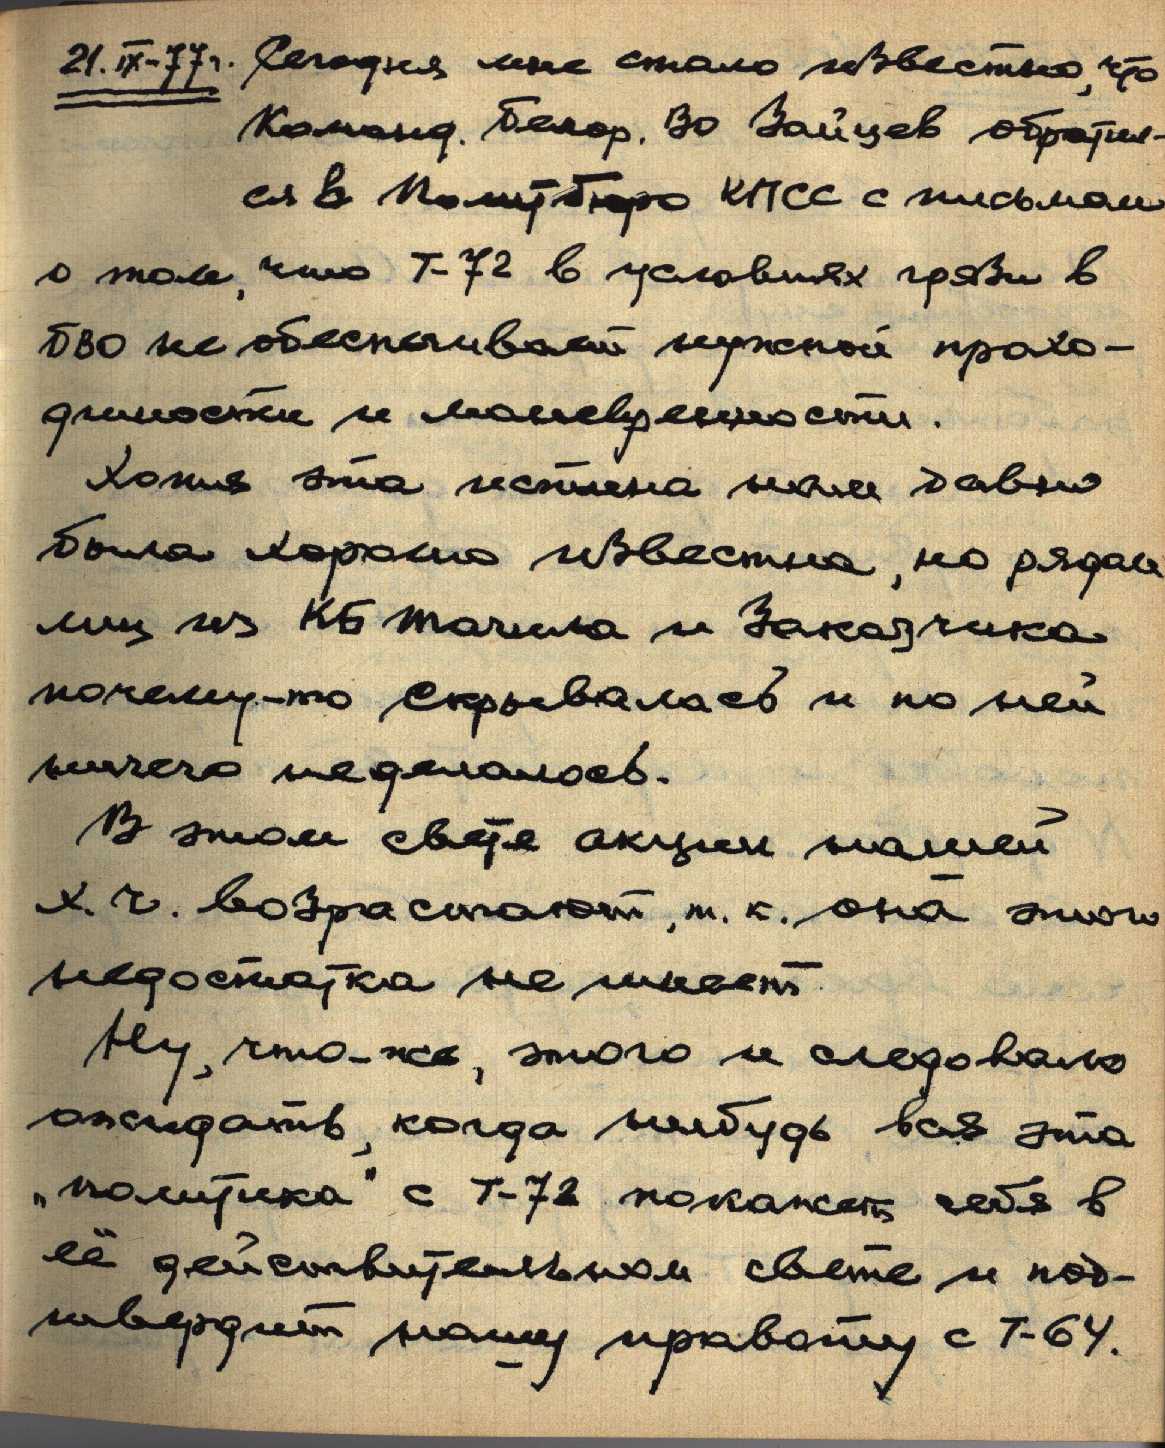 21.IX-77г. Сегодня мне стало известно, что
Команд. Белор. ВО Зайцев обратил-
ся в Политбюро КПСС с письмом
о том, что Т-72 в условиях грязи в
БВО не обеспечивает нужной прохо-
димости и маневренности.
Хотя эта истина нам давно
была хорошо известна, но рядом
лиц из КБ Тагила и Заказчика
почему-то скрывалась и по ней
ничего не делалось.
В этом свете акции нашей
х.ч. возрастают, т.к. она этого
недостатка не имеет
Ну, что-же, этого и следовало
ожидать, когда нибудь вся эта
„политика" с Т-72 покажет себя в
её действительном свете и под-
твердит нашу правоту с Т-64.